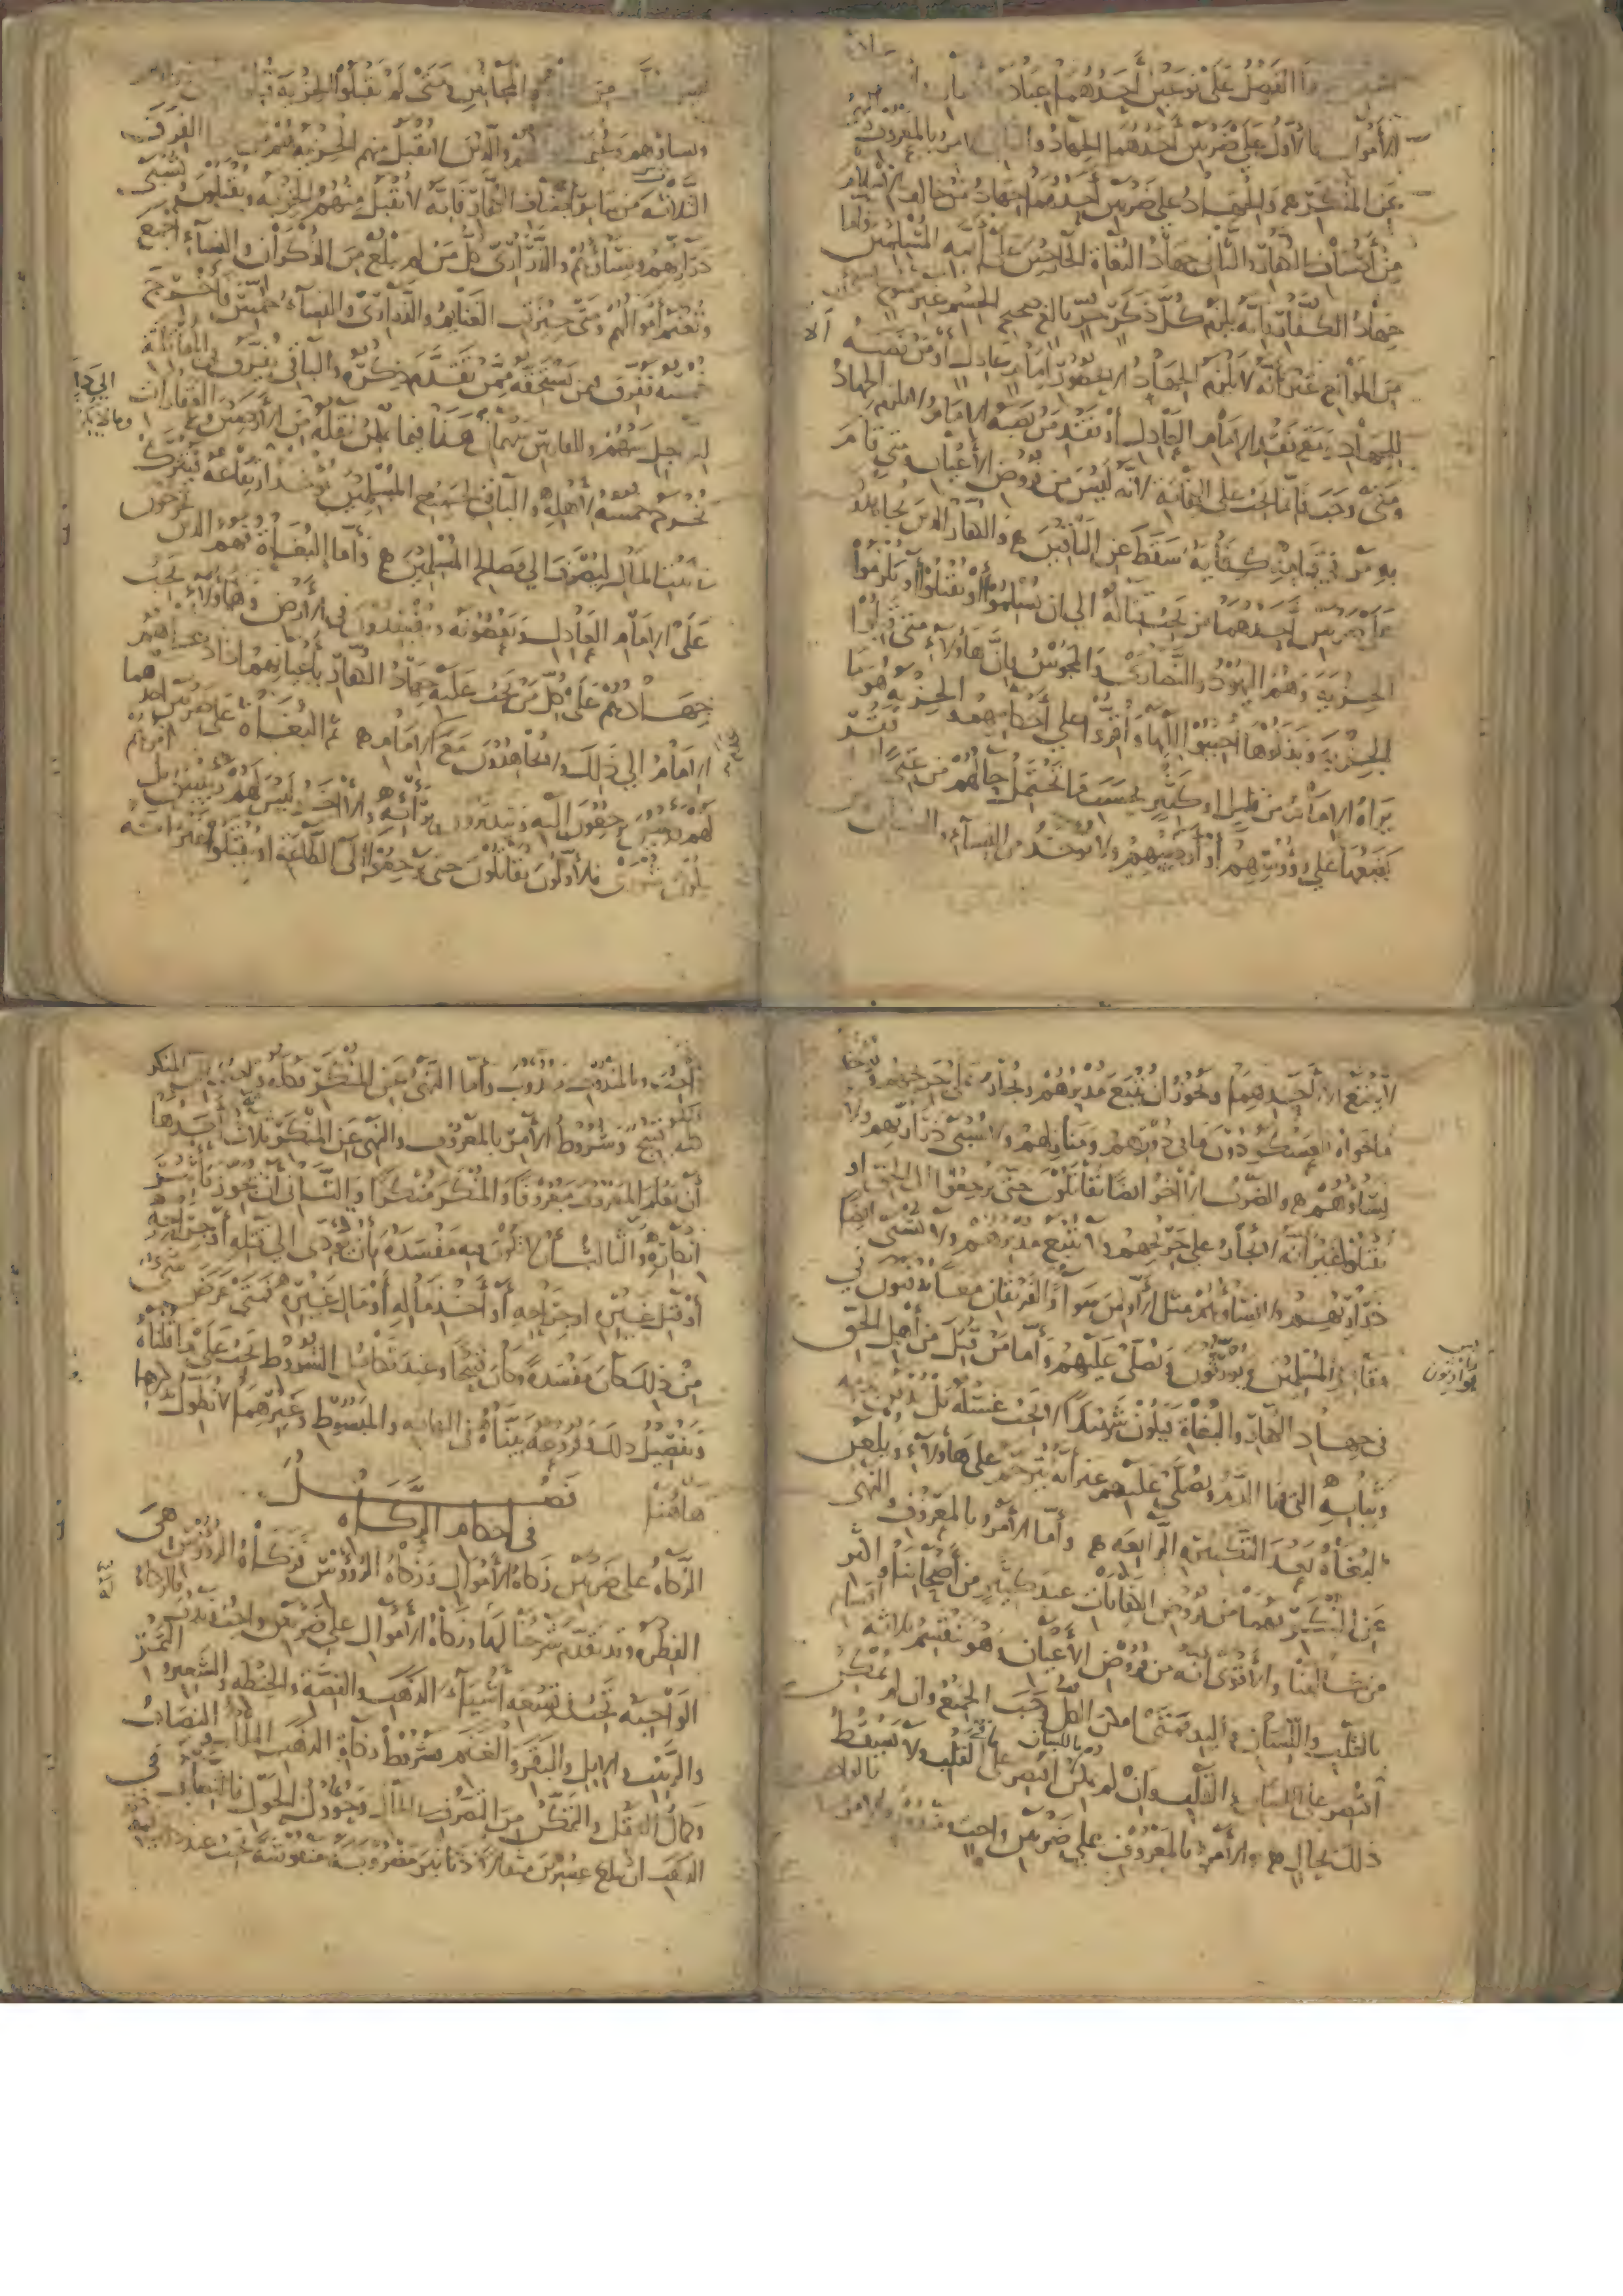 الفصل على نوعين أحدهما عبادات
الأموال فالأول على ضربين أحدهما الجهاد والثاني الأمر بالمعروف والنهي
عن المنكر والجهاد على ضربين أحدهما جهاد من خالف الإسلام
من أصناف الكفار والثاني جهاد البغاة الخارجين على أئمة المسلمين وأما
جهاد الكفار فإنه يلزم كل ذكر حر بالغ صحيح الجسم غير ممنوع
من الموانع غير أنه لا يلزم الجهاد إلا بحضور إمام عادل أو من نصبه
للجهاد ومع فقد الإمام العادل أو فقد من نصبه الإمام لا يلزم الجهاد
ومتى وجب فإنما يجب على الكفاية لأنه ليس من فروض الأعيان ومتى قام
به من في قيامه كفاية سقط عن الباقين والكفار الذين يجاهدون
على ضربين أحدهما من يجب قتاله إلى أن يسلموا أو يقتلوا أو يلتزموا
الجزية وهم اليهود والنصارى والمجوس فإن هؤلاء متى قبلوا
الجزية وبذلوها أجيبوا إليها وأقروا على أحكامهم والجزية هو ما
يراه الإمام من قليل أو كثير بحسب ما تحتمل حالهم من غنى أو فقر
يضعها على رؤوسهم أو أرضيهم ولا يؤخذ من النساء والصبيان
والمجانين ومتى لم يقبلوا الجزية
ونساؤهم والذين لا تقبل منهم الجزية فهم من عدا الفرق
الثلاثة من سائر أصناف الكفار فإنه لا تقبل منهم الجزية ويقتلون وتسبى
ذراريهم ونساؤهم والذراري كل من لم يبلغ من الذكران والنساء أجمع
وتغنم أموالهم ومتى حيزت الغنايم والذراري والنساء خمست فأخرج
خمسه تفرق فيمن يستحقه ممن تقدم ذكره والباقي يفرق في المقاتلة
للراجل سهم وللفارس سهمان هذا فيما يمكن نقله من الأرضين والعقارات
إلى دار
وما لا يمكن
يخرج خمسه لأهله والباقي لجميع المسلمين يؤخذ ارتفاعه فيترك
بيت المال ليصرف إلى مصالح المسلمين وأما البغاة فهم الذين يخرجون
على الإمام العادل ويعصونه ويفسدون في الأرض وهؤلاء يجب
جهادهم على كل من يجب عليه جهاد الكفار بأعيانهم إذا دعاهم
الإمام إلى ذلك ولا يجاهدون مع عدم الإمام ثم البغاة على ضربين أحدهما
لهم رئيس يرجعون إليه ويتدبرون برأيه والآخر ليس لهم رئيس بل
يكون شورى فالأولون يقاتلون حتى يرجعوا إلى الطاعة أو يقتلوا غير أنه
لا يمنع الإمام أحدهما ويجوز أن يتبع مدبرهم ويجاز على جريحهم ويؤخذ
ما حواه العسكر دون ما في دورهم ومنازلهم ولا تسبى ذراريهم ولا
نساؤهم والضرب الآخر أيضا يقاتلون حتى يرجعوا إلى الحق أو
يقتلوا غير أنه لا يجاز على جريحهم ولا يتبع مدبرهم ولا تسبى أيضا
ذراريهم ولا نساؤهم مثل الأولين سواء والفريقان معا يدفنون في
مقابر المسلمين ويورثون ويصلى عليهم وأما من قتل من أهل الحق
في جهاد الكفار والبغاة فيكون شهيدا لا يجب غسله بل يدفن
وثيابه التي فيها الدم ويصلى عليهم غير أنه يترحم على هؤلاء ويلعن
البغاة بعد التكبيرة الرابعة وأما الأمر بالمعروف والنهي
عن المنكر فهما من فروض الكفايات عند كثير من أصحابنا وأكثر
من خالفنا والأقوى أنه من فروض الأعيان وهو ينقسم ثلاثة أقسام
بالقلب واللسان واليد فمتى أمكن الكل وجب الجميع وإن لم يمكن
اقتصر على اللسان والقلب وإن لم يمكن اقتصر على القلب ولا يسقط
ذلك بحال والأمر بالمعروف على ضربين واجب
وبالمندوب مندوب وأما النهي عن المنكر فكله واجب لأن المنكر
كله قبيح وشروط الأمر بالمعروف والنهي عن المنكر ثلاث أحدها
أن يعلم المعروف معروفا والمنكر منكرا والثاني أن يجوز تأثير
إنكاره والثالث أن لا يكون فيه مفسدة بأن يؤدي إلى قتله أو جراحه
أو قتل غيره أو جراحه أو أخذ ماله أو مال غيره فمتى عرض
من ذلك كان مفسدة وكان قبيحا وعند تكامل الشروط يجب على ما قلناه
وتفصيل ذلك وفروعه بيناه في النهاية والمبسوط وغيرهما لا نطول بذكرها
هاهنا
فصل
في أحكام الزكاة
الزكاة على ضربين زكاة الأموال وزكاة الرؤوس فزكاة الرؤوس هي
الفطرة وقد تقدم شرحنا لها وزكاة الأموال على ضربين واجب وندب فالزكاة
الواجبة تجب في تسعة أشياء الذهب والفضة والحنطة والشعير والتمر
والزبيب والإبل والبقر والغنم وشروط زكاة الذهب الملك والنصاب
وكمال العقل والتمكن من التصرف في المال وحؤول الحول فالنصاب في
الذهب أن يبلغ عشرين مثقالا دنانير مضروبة منقوشة يجب عند ذلك